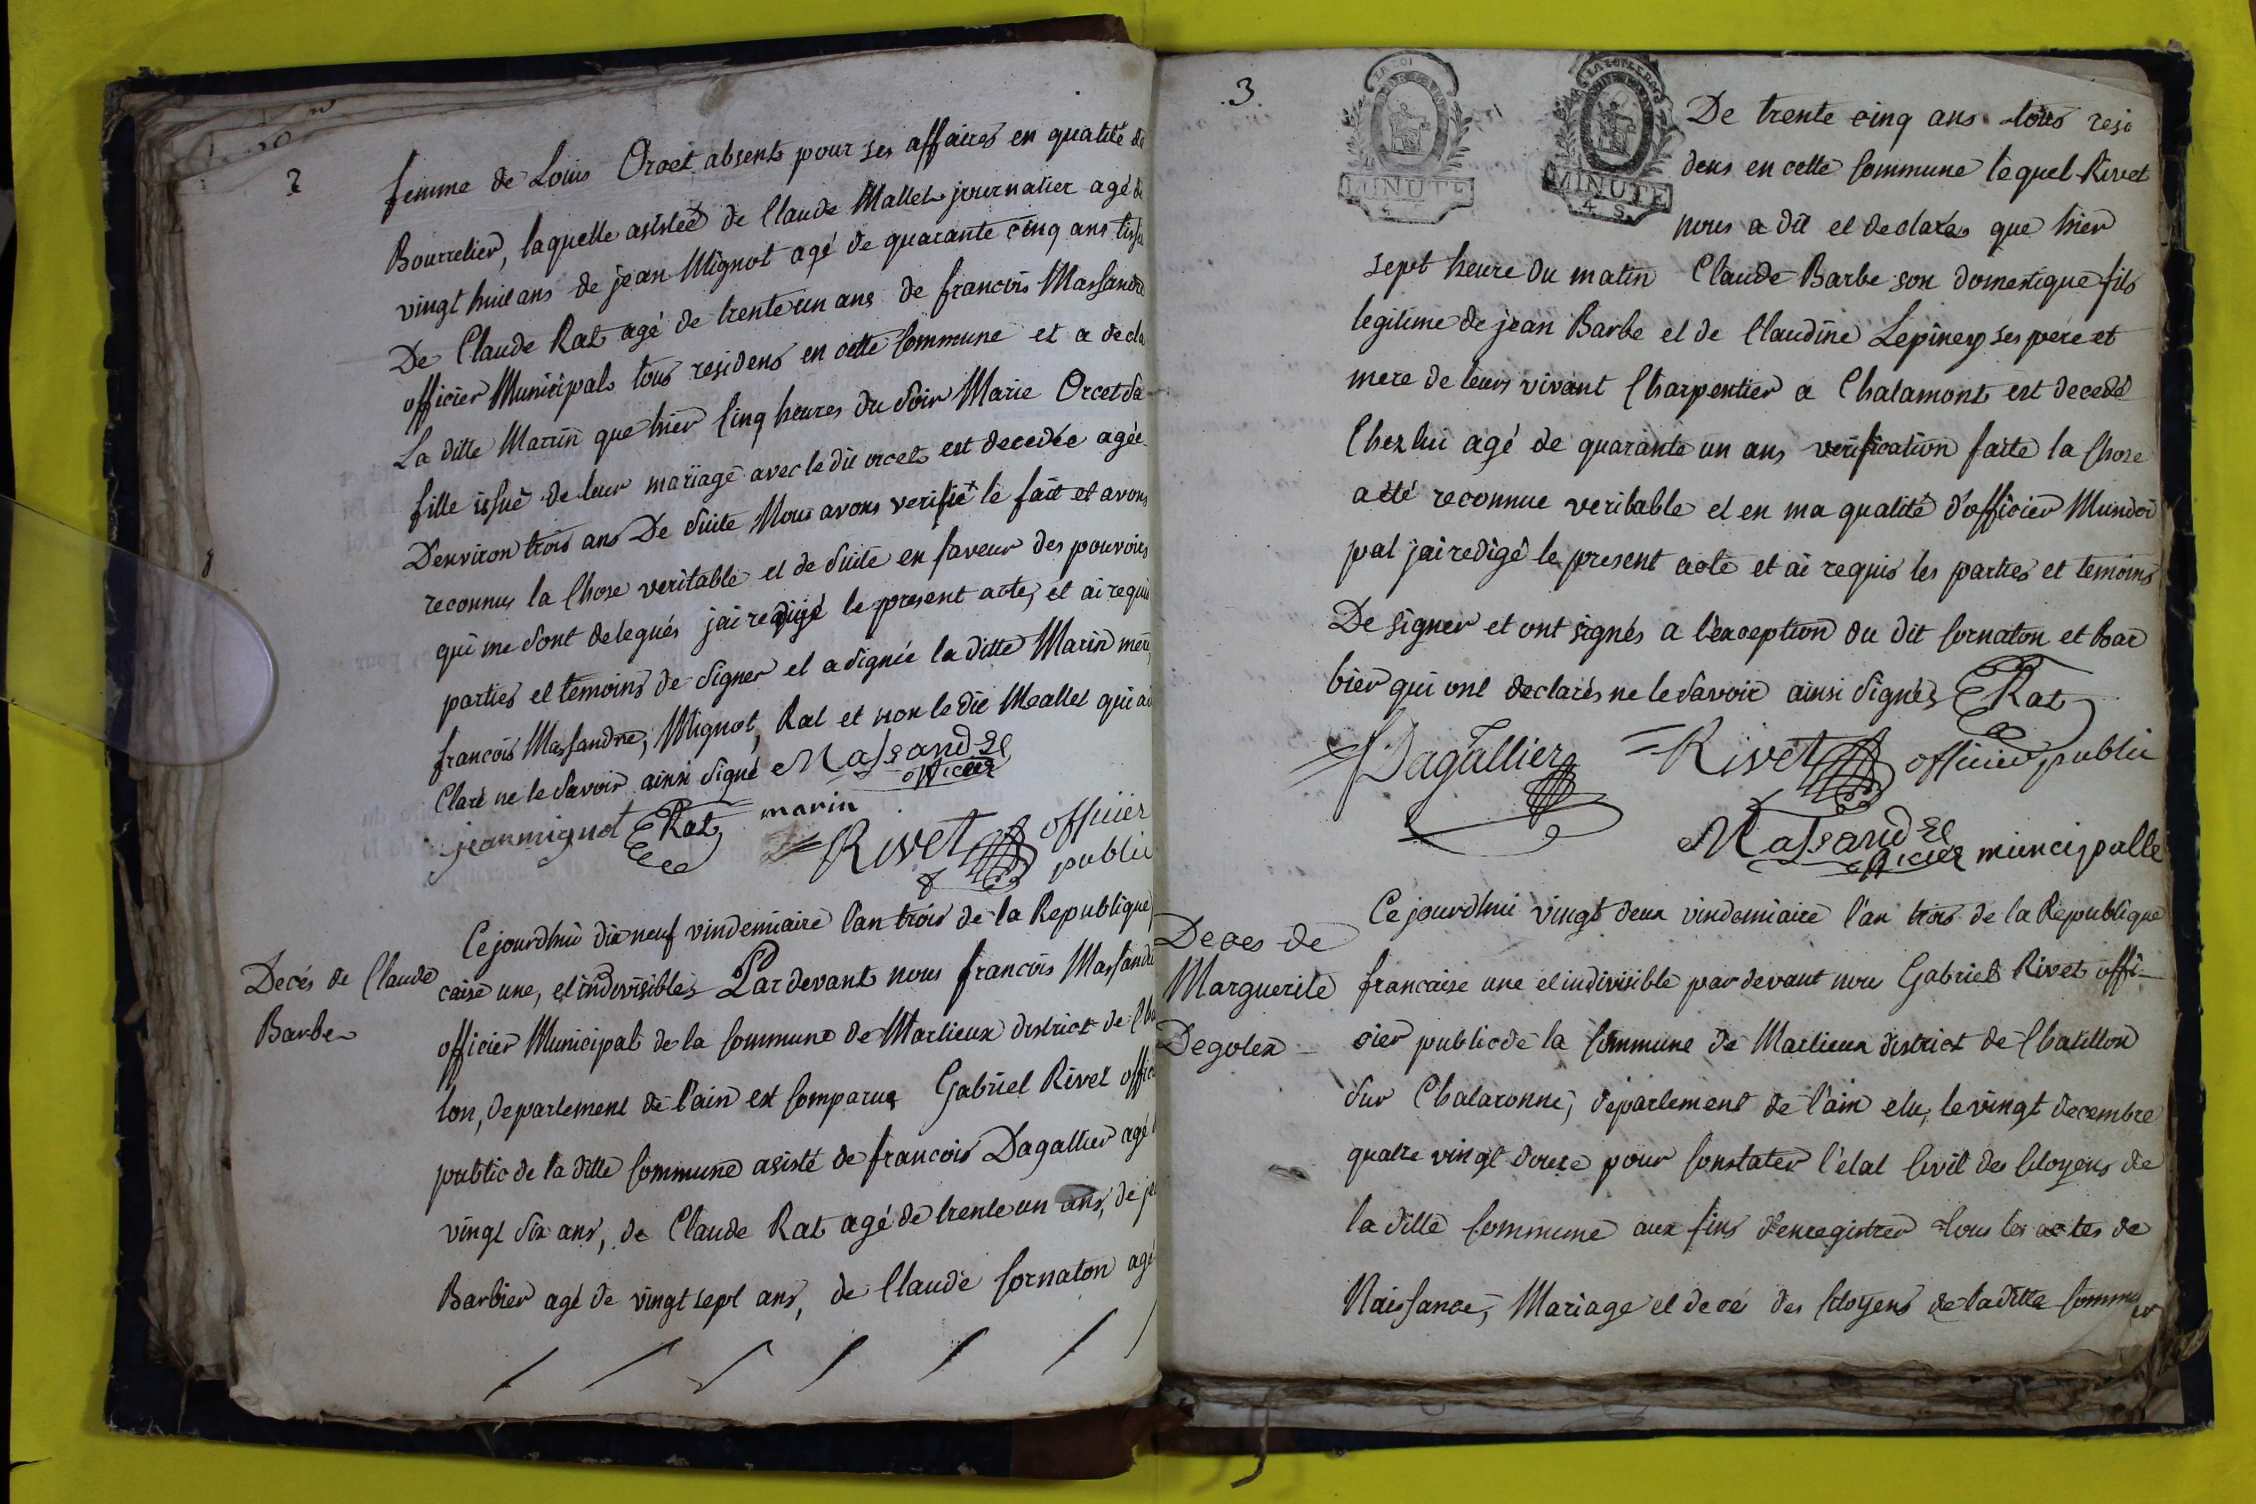 2
femme de Louis Orcet absent pour ses affaires en qualité de
Bourrelier, laquelle asistée de Claude Mallet journalier agé de
vingt huit ans de jean Mignot agé de quarante cinq ans
De Claude Rat agé de trente un ans de francois Massandre
officier Municipal tous residens en cette Commune et a decla
La ditte Marin que hier Cinq heures du Soir Marie Orcet Sa
fille issuë de leur mariage avec le dit orcet est decedée agée
Denviron trois ans De Suite Nous avons verifié le fait et avons
reconnus la Chose veritable et de Suite en faveur des pouvoirs
qui me Sont delegués jai redigé le present acte, et ai requis
parties et temoins de Signer et a Signée la ditte Marin mere,
francois Massandre, Mignot, Rat et non le dit Meallet qui a
Claré ne le Savoir ainsi Signé Massandre
officier
jean mignot Rat marin
Rivet officier
public
Decés de Claude
Barbe
Ce jourdhui dix neuf vindemiaire l'an trois de la Republique
caise une, et indivisible Par devant nous francois Massandre
officier Municipal de la Commune de Marlieux district de Cha
lon, departement de l'ain est Comparus Gabriel Rivet offici
public de la ditte Commune asisté de francois Dagallier agé
vingt Six ans, de Claude Rat agé de trente un ans, de je
Barbier agé de vingt sept ans, de Claude Cornaton agé
.3.
LA LOI
MINUTE
MINUTE
4. S.
De trente cinq ans tous resi
dens en cette Commune lequel Rivet
nous a dit et declare que hier
sept heure du matin Claude Barbe son domentique fils
legitime de jean Barbe et de Claudine Lepiney ses pere et
mere de leurs vivant Charpentier a Chalamont est decedé
Chez lui agé de quarante un ans verification faite la Chose
a été reconnue veritable et en ma qualité d'officier Munici
pal jai redigé le present acte et ai requis les parties et temoins
De signer et ont signés a l'exception du dit Cornaton et Bar
bier qui ont declarés ne le Savoir ainsi Signés Rat
Dagallier Rivet officier public
Massandre
officier muncipalle
Deces de
Marguerite
Degolex
Ce jourdhui vingt deux vindemiaire l'an trois de la Republique
francaise une et indivisible par devant nou Gabriel Rivet offi-
cier public de la Commune de Marlieux district de Chatillon
Sur Chalaronne, departement de l'ain elu, le vingt decembre
quatre vingt douze pour Constater l'etat Civil des Citoyens de
la ditte Commune aux fins d'enregistrer tous les actes de
Naissance, Mariage et decés des Citoyens de la ditte Commu